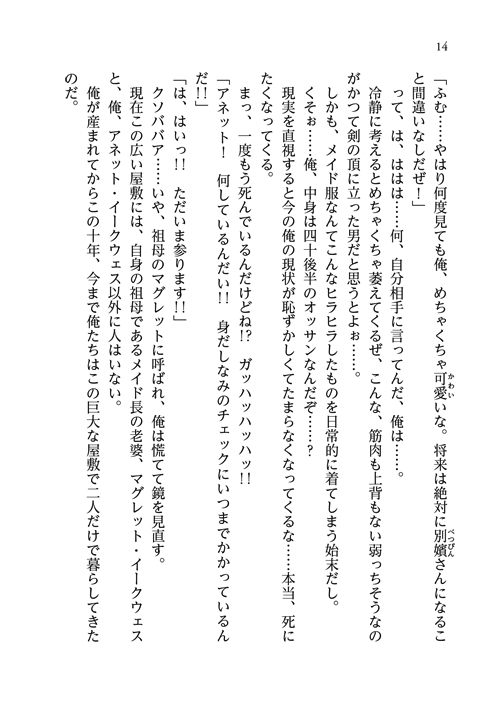 14
「ふむ……やはり何度見ても俺、めちゃくちゃ可愛いな。将来は絶対に別嬪さんになるこ
かわい
べっぴん
と間違いなしだぜ！」
って、は、ははは……何、自分相手に言ってんだ、俺は……。
冷静に考えるとめちゃくちゃ萎えてくるぜ、こんな、筋肉も上背もない弱っちそうなの
がかつて剣の頂に立った男だと思うとよぉ……。
しかも、メイド服なんてこんなヒラヒラしたものを日常的に着てしまう始末だし。
くそぉ……俺、中身は四十後半のオッサンなんだぞ……？
現実を直視すると今の俺の現状が恥ずかしくてたまらなくなってくるな……本当、死に
たくなってくる。
まっ、一度もう死んでいるんだけどね!? ガッハッハッハッ!!
「アネット！ 何しているんだい!! 身だしなみのチェックにいつまでかかっているん
だ!!」
「は、はいっ!! ただいま参ります!!」
クソババア……いや、祖母のマグレットに呼ばれ、俺は慌てて鏡を見直す。
現在この広い屋敷には、自身の祖母であるメイド長の老婆、マグレット・イークウェス
と、俺、アネット・イークウェス以外に人はいない。
俺が産まれてからこの十年、今まで俺たちはこの巨大な屋敷で二人だけで暮らしてきた
のだ。